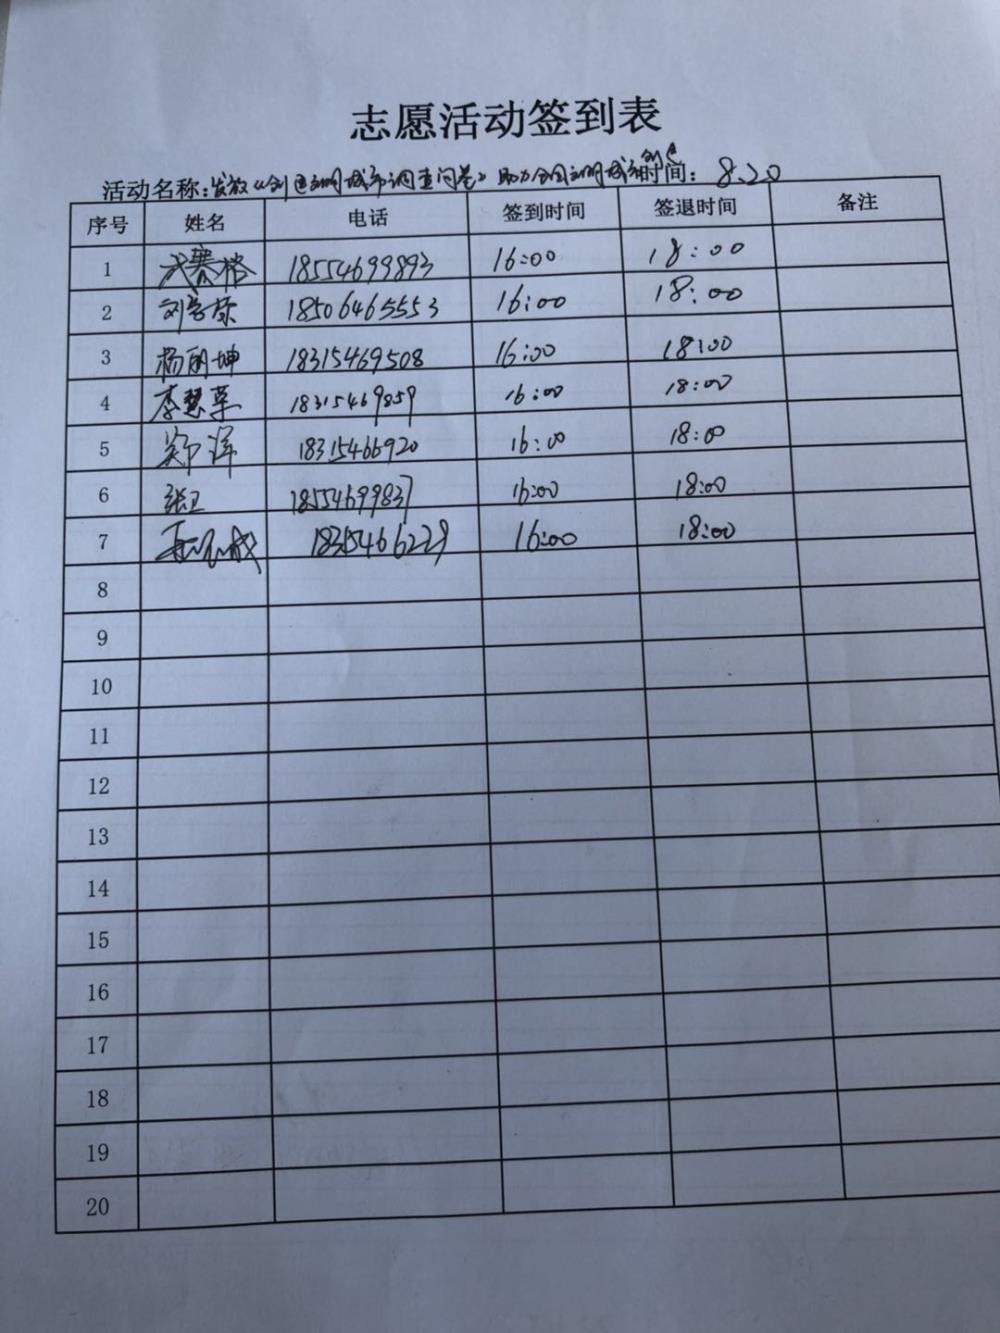 志愿活动签到表
活动名称:发放《创建文明城市调查问卷》助力全国文明城市创建 时间: 8.20
序号 姓名 电话 签到时间 签退时间 备注
1 武赛格 18554699893 16:00 18:00
2 刘 18506465553 16:00 18:00
3 杨丽坤 18315469508 16:00 18:00
4 李慧革 18315469859 16:00 18:00
5 郑洋 18315466920 16:00 18:00
6 张卫 18554699837 16:00 18:00
7 18315466229 16:00 18:00
8
9
10
11
12
13
14
15
16
17
18
19
20